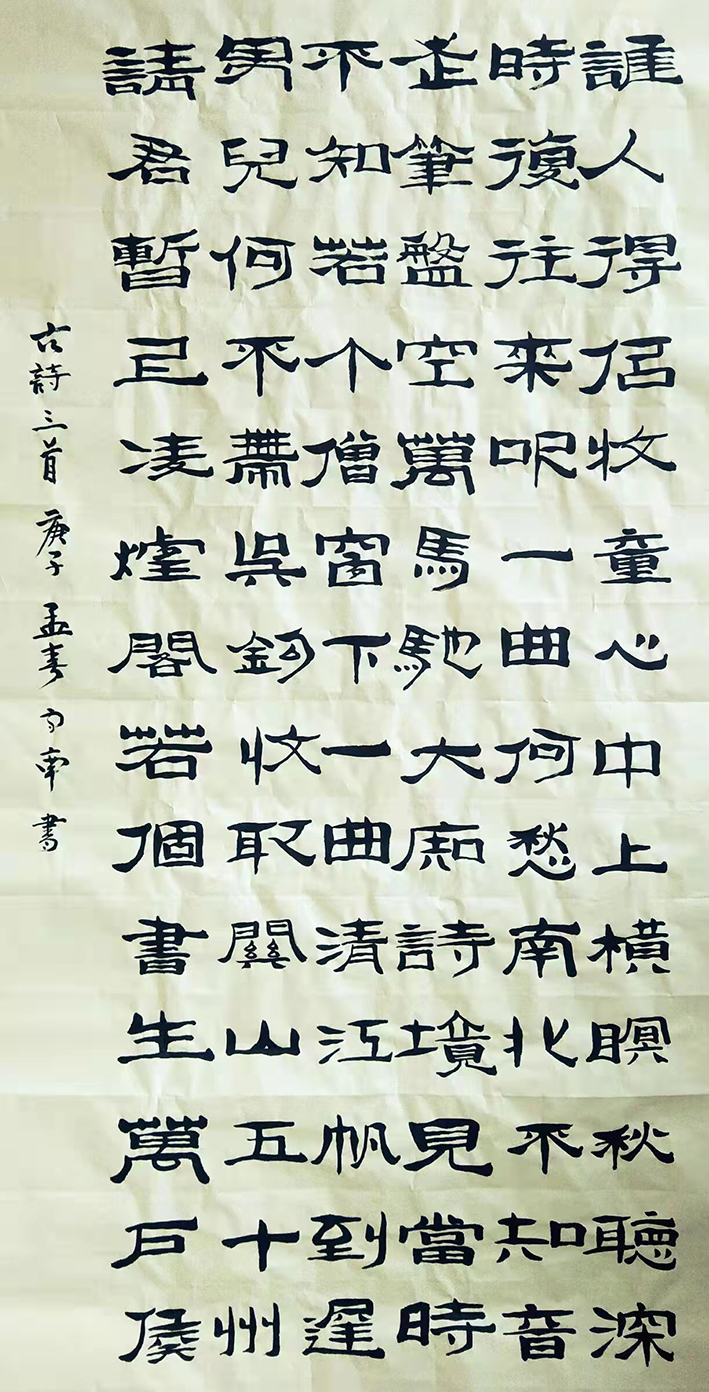 誰人得佀牧童心中上橫瞑秋聽深
時復往來吹一曲何愁南北不知音
走筆盤空萬馬馳大痴詩境見當時
不知若个僧窗下一曲清江帆到遲
男兒何不帶吳鉤收取關山五十州
請君暫上凌煙閣若個書生萬戶侯
古詩三首 庚子孟春 南書